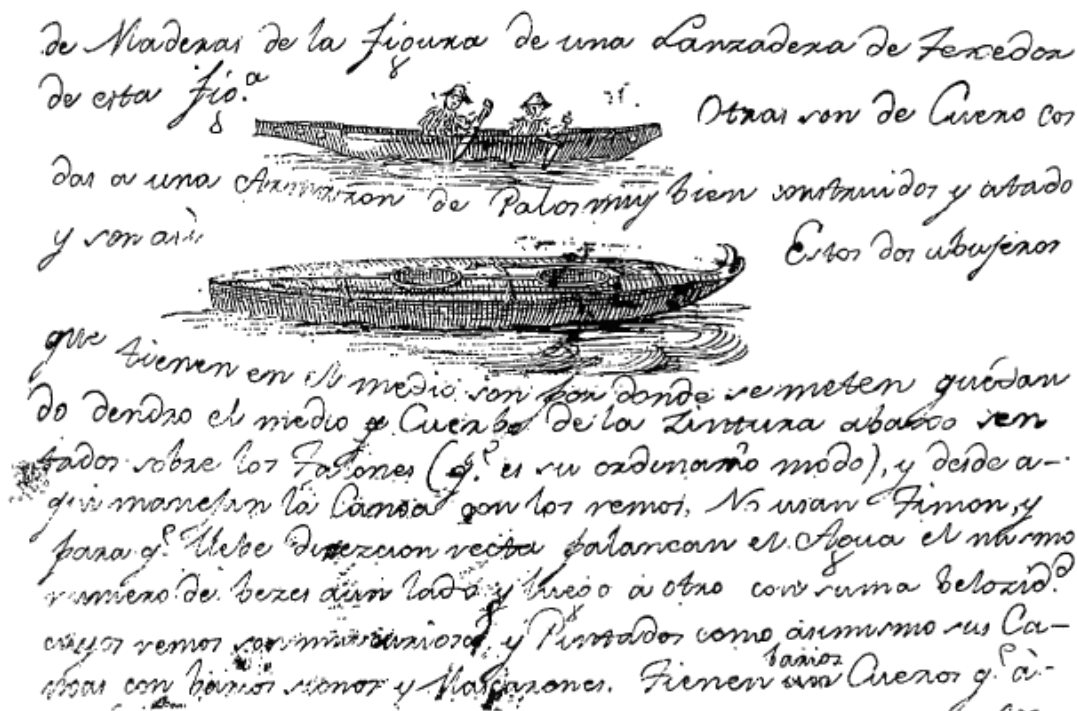 de Maderas de la figura de una Lanzadera de Texedor
de esta fig.a
Otras son de Cuero cos
das a una Armazon de Palos muy bien construidos y atado
y son asi
Estos dos abujeros
que tienen en el medio son por donde se meten quedan
do dendro el medio Cuerbo de la Zintura abaxo sen
tados sobre los Talones (q.e es su ordinario modo), y desde a-
qui manejan la Canoa con los remos, No usan Timon, y
para q.e llebe direzcion recta palancan el Agua el mismo
numero de bezes a un lado y luego a otro con suma belozid.d
cuyos remos son mui curiosos, y Pintados como asimismo sus Ca-
noas con barios monos y Mascarones. Tienen barios Cueros q.e a-